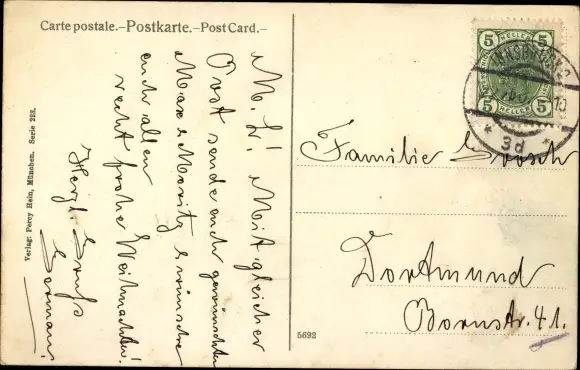 Carte postale.–Postkarte.–Post Card.–
M. L! Mit gleicher
Post sende euch gewünschten
Max & Moritz & wünsche
euch allen
recht frohe Weihnachten!
Herzl. Gruß
Hermann.
Verlag: Percy Hein, München. Serie 293.
5692
5 HELLER 5
5 HELLER 5
INNSBRUCK 2
10
* 3d *
Familie Grosch
Dortmund
Bornstr. 41.